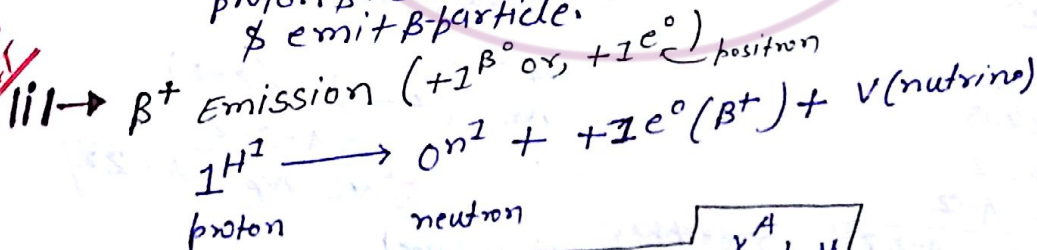 & emit β-particle.
iii→ β⁺ Emission (+1β⁰ or, +1e⁰) positron
1H¹ → 0n¹ + +1e⁰(β⁺) + ν(nutrino)
proton neutron